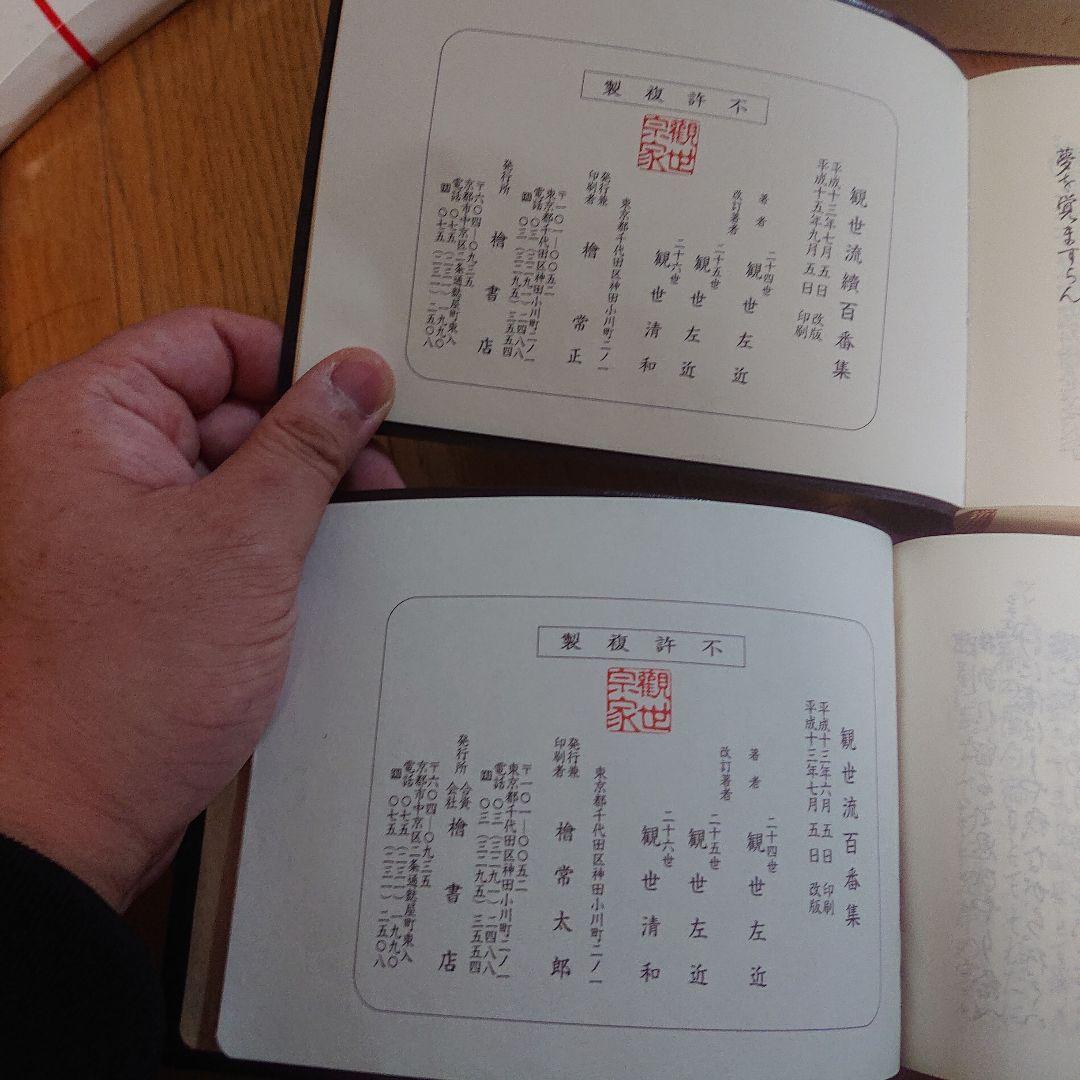 不許複製
觀世宗家
観世流續百番集
平成十三年七月五日 改版
平成十五年九月五日 印刷
著者
二十四世 観世左近
改訂著者
二十五世 観世左近
二十六世 観世清和
東京都千代田区神田小川町二ノ一
発行兼
印刷者
檜常正
〒一〇一―〇〇五二
東京都千代田区神田小川町二ノ一
電話 〇三(三二九一)二四八八
〇三(三二九五)三五五四
発行所
檜書店
〒六〇四―〇九三五
京都市中京区二条通麩屋町東入
電話 〇七五(二三一)一九九〇
〇七五(二三一)二五〇八
夢を覚ますらん
不許複製
觀世宗家
観世流百番集
平成十三年六月五日 印刷
平成十三年七月五日 改版
著者
二十四世 観世左近
改訂著者
二十五世 観世左近
二十六世 観世清和
東京都千代田区神田小川町二ノ一
発行兼
印刷者
檜常太郎
〒一〇一―〇〇五二
東京都千代田区神田小川町二ノ一
電話 〇三(三二九一)二四八八
〇三(三二九五)三五五四
発行所
合資会社
檜書店
〒六〇四―〇九三五
京都市中京区二条通麩屋町東入
電話 〇七五(二三一)一九九〇
〇七五(二三一)二五〇八